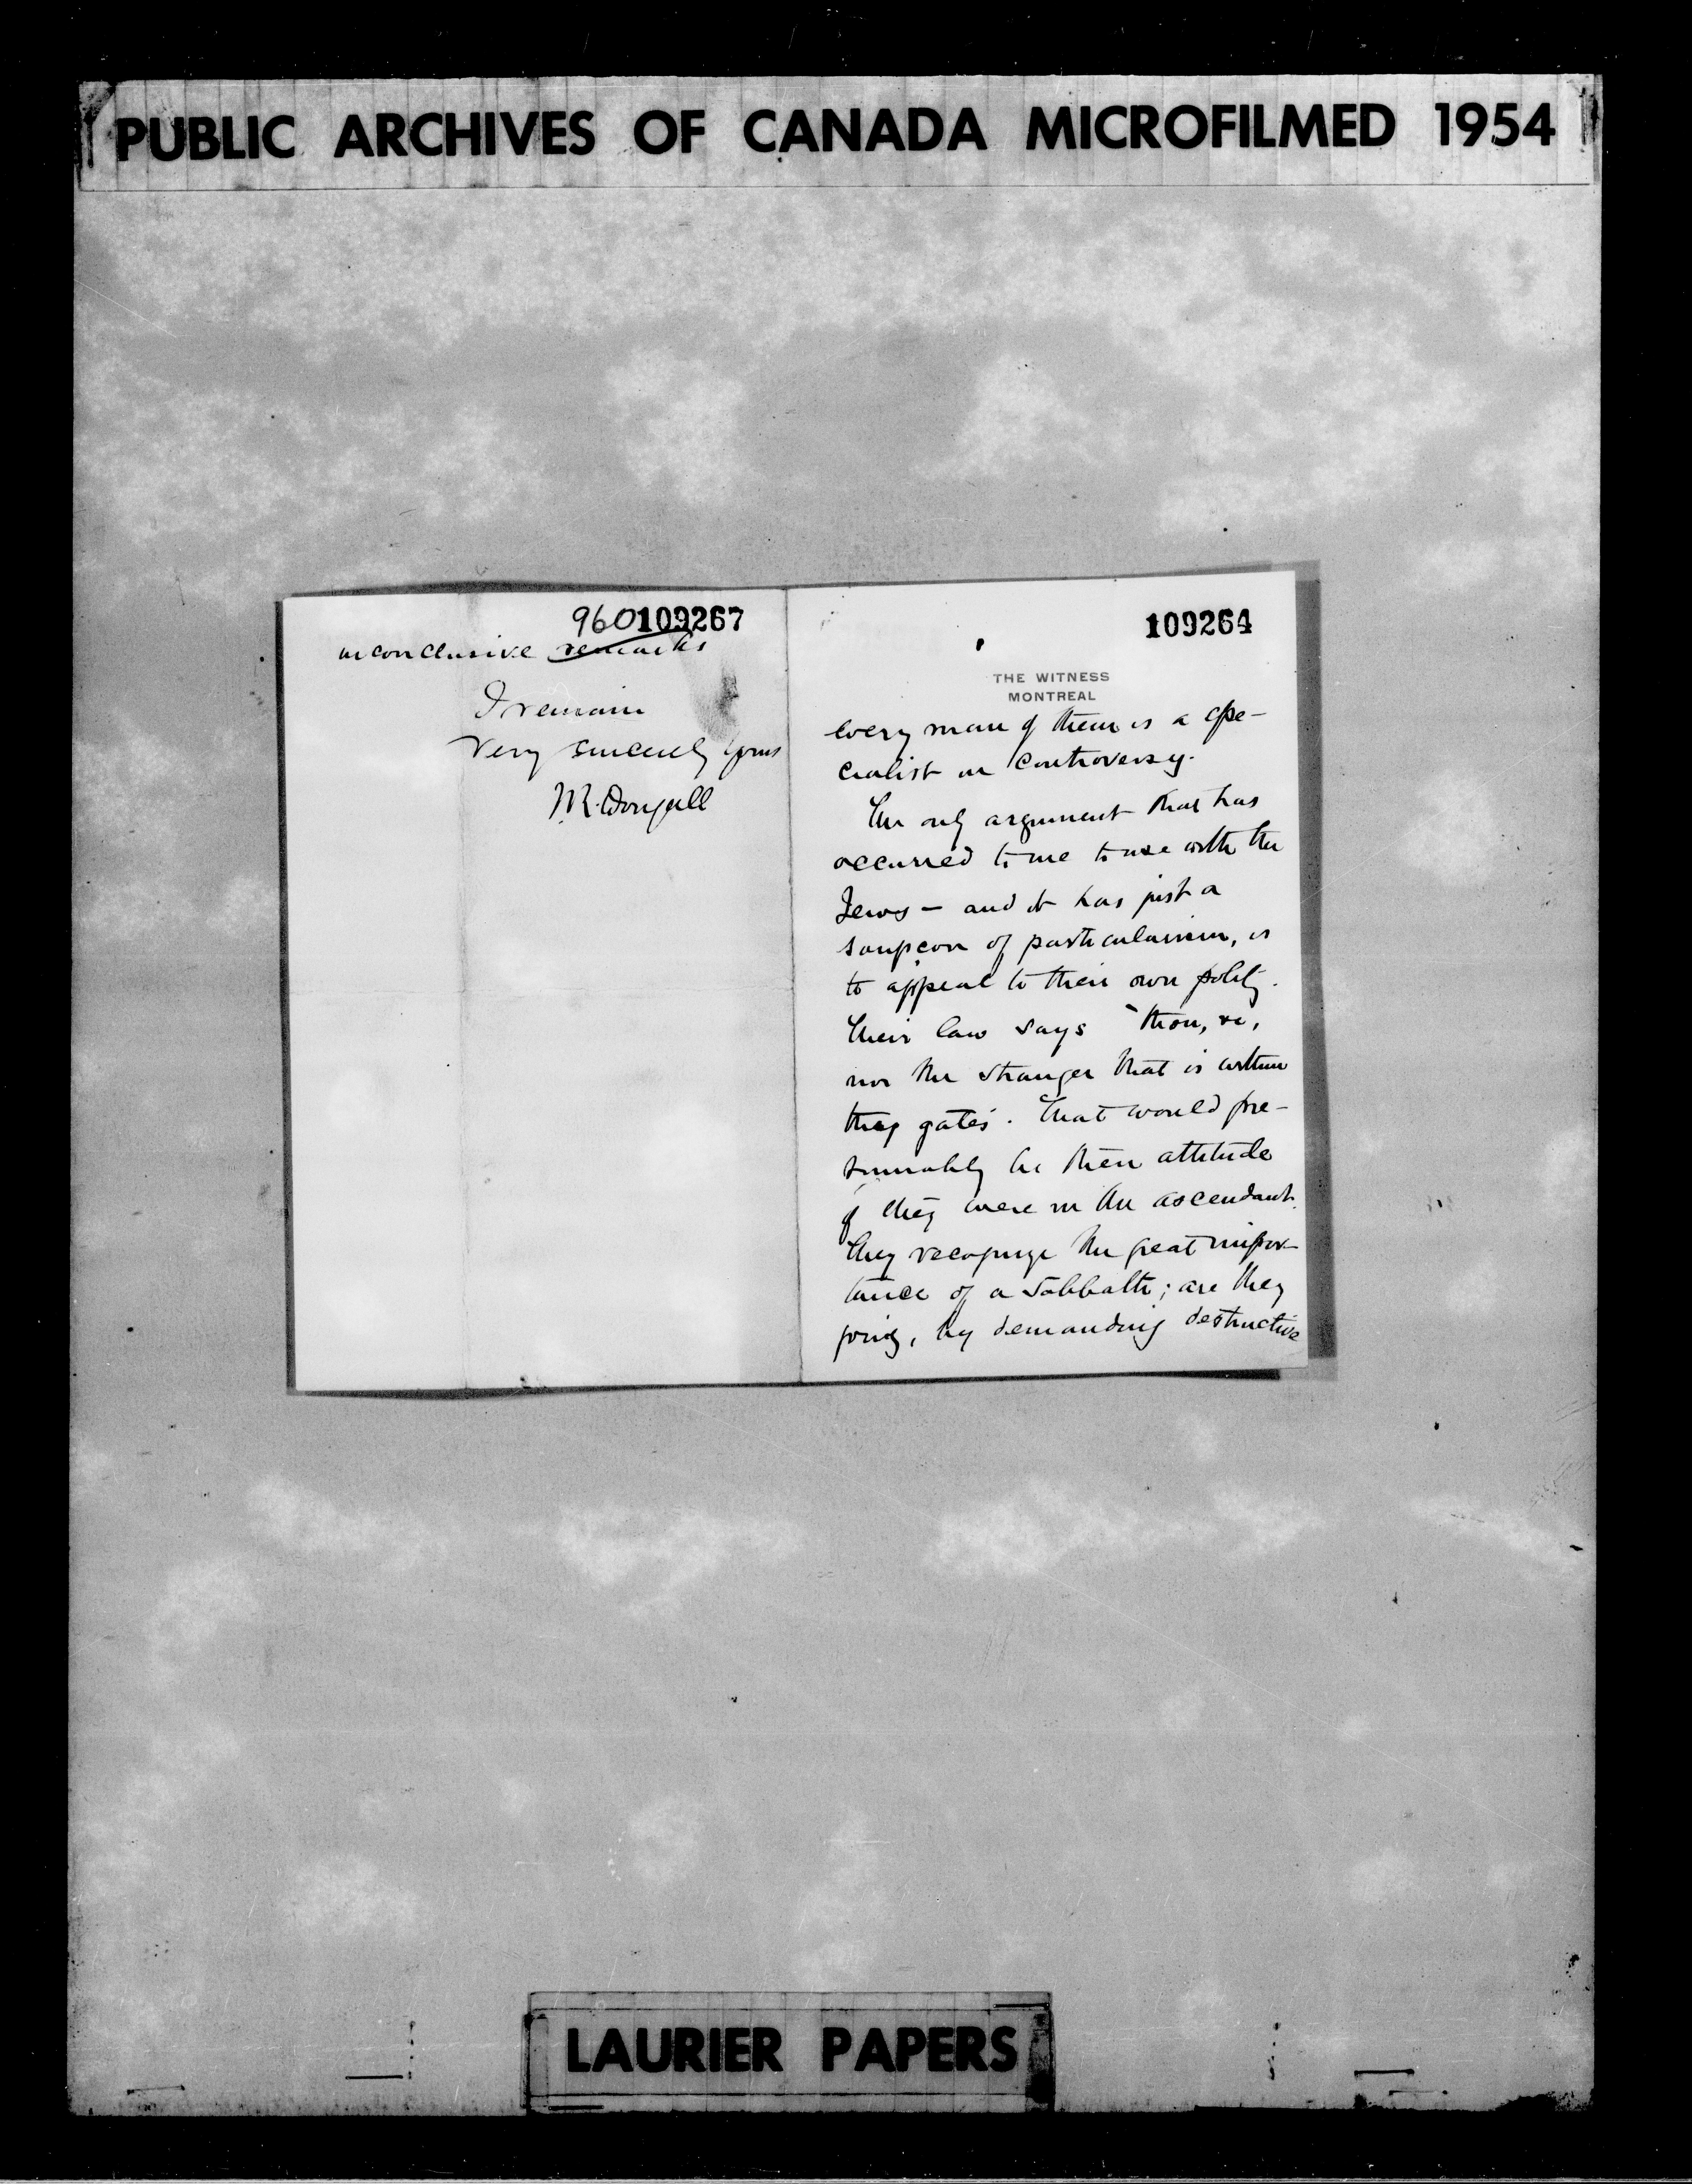 PUBLIC ARCHIVES OF CANADA MICROFILMED 1954
960109267
inconclusive remarks
I remain
Very sincerely yours
J.R. Dougall
109264
THE WITNESS
MONTREAL
every man of them is a spe-
cialist in controversy.
The only argument that has
occurred to me to use with the
Jews — and it has just a
soupcon of particularism, is
to appeal to their own polity.
Their law says "thou, &c,
nor the stranger that is within
thy gates". That would pre-
sumably be their attitude
if they were in the ascendant.
They recognize the great impor-
tance of a Sabbath; are they
going, by demanding destructive
LAURIER PAPERS